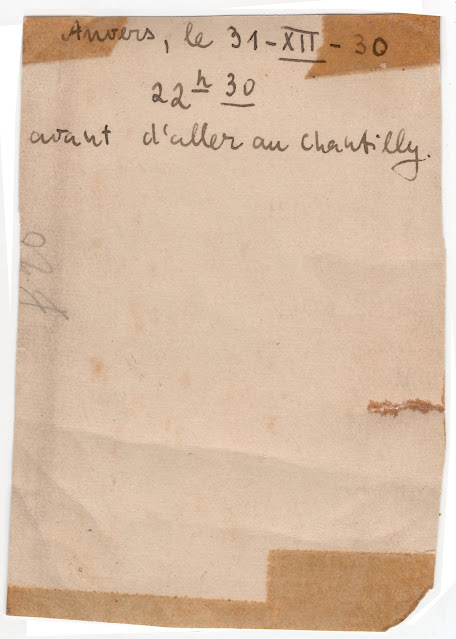 Anvers, le 31-XII-30
22h 30
avant d'aller au Chantilly.